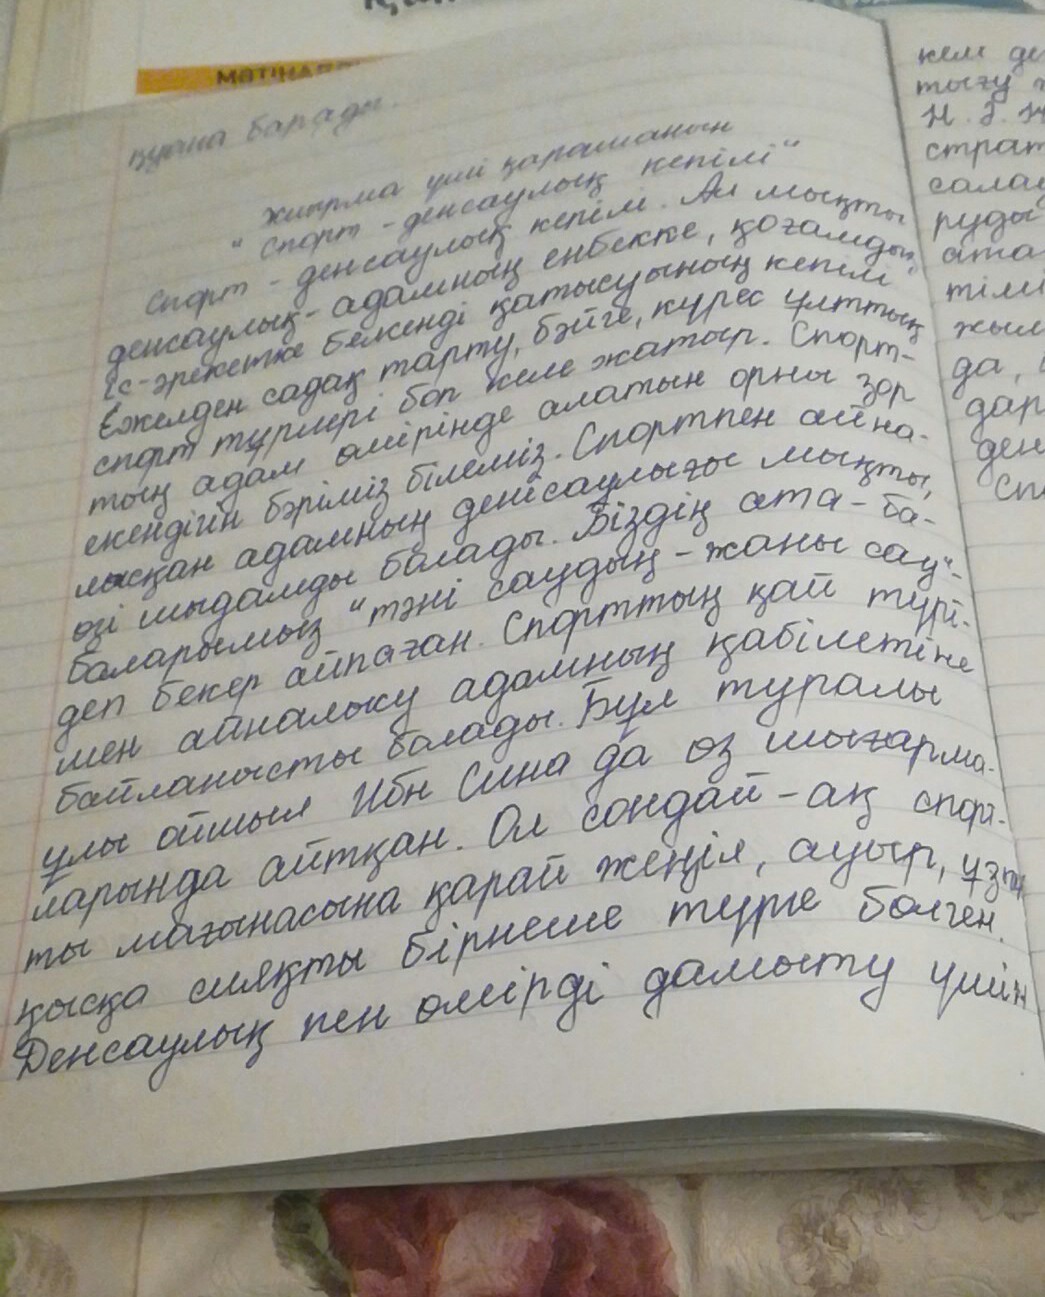 МӘТІНАЛДЫ
барады.
жиырма үші қарашаның
"Спорт - денсаулық кепілі"
Спорт - денсаулық кепілі. Ал мықты
денсаулық - адамның еңбекке, қоғамдық
іс-әрекетке белсенді қатысуының кепілі
Ежелден садақ тарту, бәйге, күрес ұлттық
спорт түрлері боп келе жатыр. Спорт-
тың адам өмірінде алатын орны зор
екендігін бәріміз білеміз. Спортпен айна-
лысқан адамның денісаулығы мықты,
өзі шыдамды болады. Біздің ата-ба-
баларымыз "тәні саудың - жаны сау"-
деп бекер айпаған. Спорттың қай түрі-
мен айналысу адамның қабілетіне
байланысты болады. Бұл туралы
ұлы ойшыл Ибн Сина да өз шығарма-
ларында айтқан. Ол сондай-ақ спорт-
ты мағынасына қарай жеңіл, ауыр, ұзақ
қысқа сияқты бірнеше түрге бөлген.
Денсаулық пен өмірді дамыту үшін
кем де
тығу
Н.
страт
салау
руды
ата
тілі
жыл
да,
дар
ден
Сп